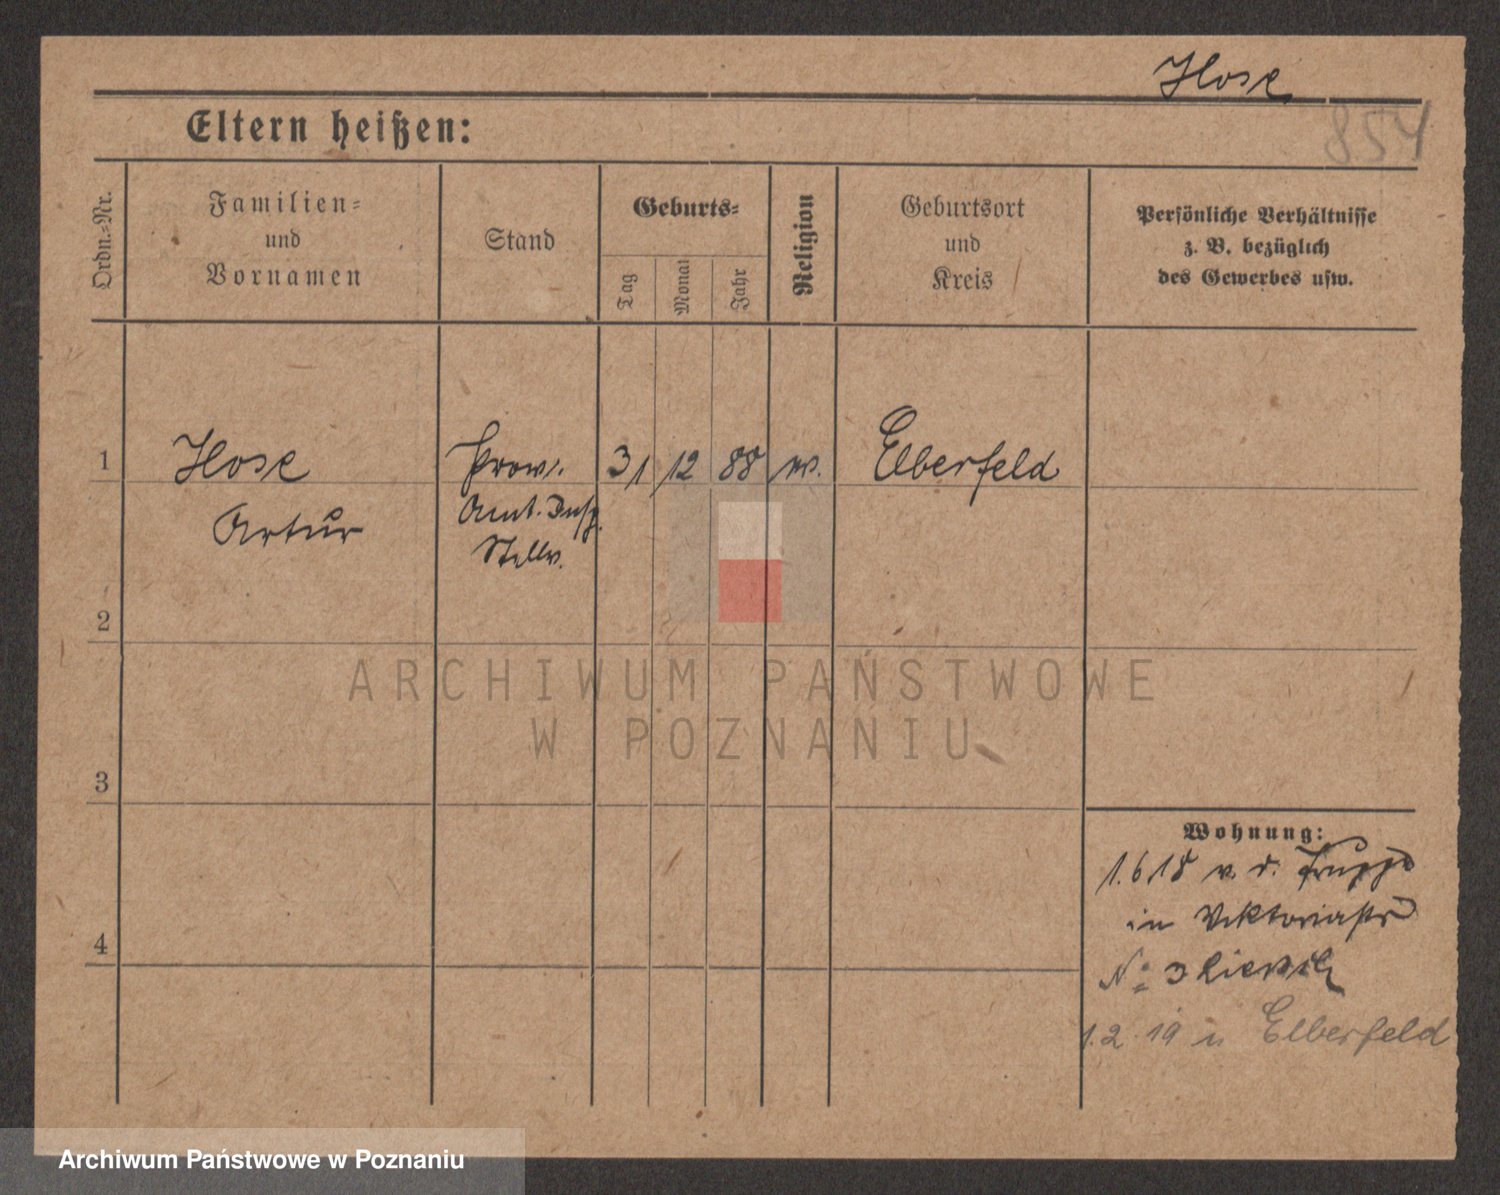 Hose
854
Eltern heißen:
Ordn.-Nr.
Familien-
und
Vornamen
Stand
Geburts-
Tag
Monat
Jahr
Religion
Geburtsort
und
Kreis
Persönliche Verhältnisse
z. B. bezüglich
des Gewerbes usw.
1
Hose
Prov.
31 12 88
ev.
Elberfeld
Artur
Amt. Insp.
Stellv.
2
ARCHIWUM PAŃSTWOWE
W POZNANIU
3
Wohnung:
1.6.18 v. d. Truppe
in Viktoriastr
4
No 3
1.2.19 n Elberfeld
Archiwum Państwowe w Poznaniu